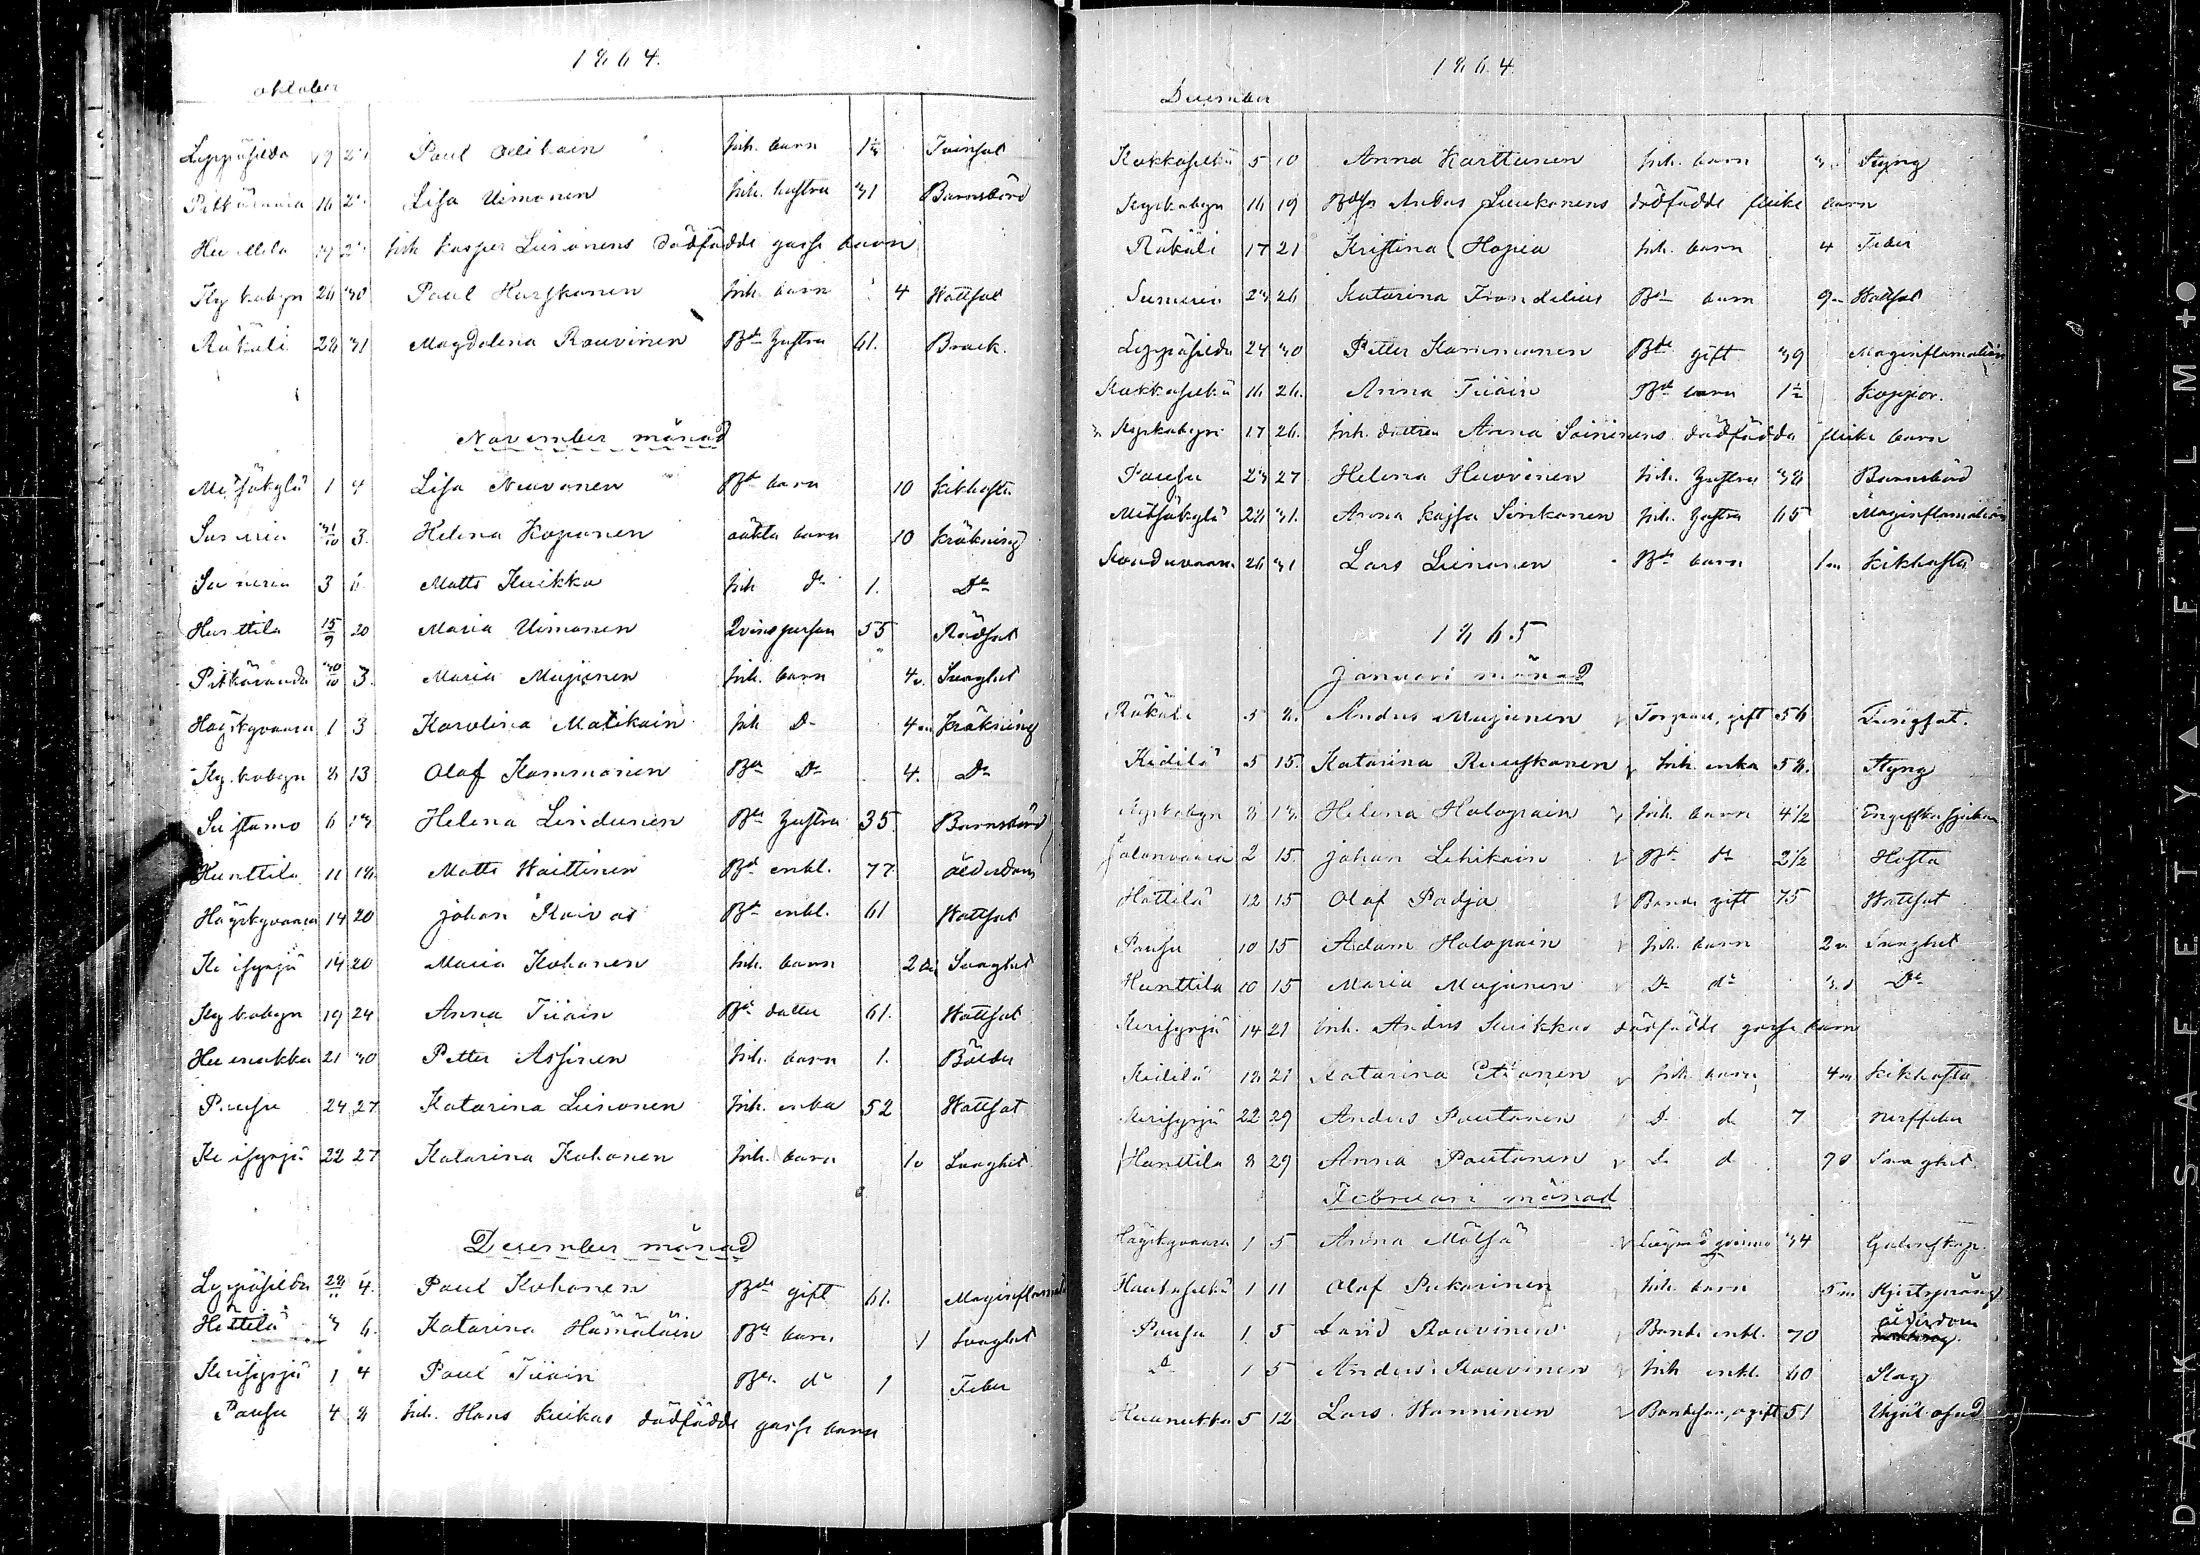 1864.
oktober
Leppäsilda 19 2 Paul Adikain Inh. barn 1 1/2 Tvinsot
Pitkäranda 16 2 Lisa Uimonen Inh. hustru 31 Barnsbörd
Hunttila 19 2 Inh Kasper Liironens dödfödde gosse barn
Kyrkobyn 26 30 Paul Hurskanen Inh. barn 4 Wattsot
Räkäli 28 31 Magdalena Rouvinen Bde hustru 61. Brock.
November månad
Metsäkylä 1 4 Lisa Nuvonen Bde barn 10 kikhosta
Sumeria 31/10 3. Helena Koponen oäkta barn 10 kräkning
Sumeria 3 6 Matts Kuikka Inh do 1. Do
Hunttila 15/9 20 Maria Uimonen Qvinsperson 55 Rödsot
Pitkäranda 30/10 3. Maria Mujunen Inh. barn 4v. Svaghet
Hayskyvaara 1 3 Karolina Matikain Inh Do 4m kräkning
Kyrkobyn 8 13 Olof Kammonen Bde Do 4. Do
Suistamo 6 13 Helena Lindunen Bde hustru 35. Barnsbörd
Hunttila 11 18. Matts Waittinen Bde enkl. 77 ålderdom
Häyskyvaara 14 20 Johan Koivas Bde enkl. 61 Wattsot
Kerisyrjä 14 20 Maria Kohonen Inh. barn 2 d. Svaghet
Kyrkobyn 19 24 Anna Tiiain Bde dotter 61. Wattsot
Huunukka 21 30 Petter Assinen Inh. barn 1. Bölder
Pausu 24 27 Katarina Liironen Inh. enka 52 Wattsot
Kerisyrjä 22 27 Katarina Kohonen Inh. barn 1v Svaghet
December månad
Leppäsilda 28/11 4. Paul Kohonen Bde gift 61. Maginflamat
Hättilä 3 6. Katarina Hämäläin Bde barn 1 Svaghet
Kerisyrjä 1 4 Paul Tiiain Bde do 1 Feber
Pausu 4 8 Inh. Hans Kuikas dödfödde gosse barn
1864.
December
Kokkaselkä 5 10 Anna Karttunen Inh. barn 3 Styng
Kyrkobyn 16 19 Anders Luukonens dödfödde flicke barn
Räkäli 17 21 Kristina Hopia Inh. barn 4 Feber
Sumeria 23 26 Katarina Frondelius Bde barn 9m Wattsot
Leppäsilda 24 30 Petter Kammonen Bde gift 39 Maginflamation
Kokkaselkä 16 26. Anna Tiiain Bde barn 1 1/2 koppor.
Kyrkobyn 17 26. Inh. dottren Anna Soininens dödfödda flicke barn
Pausu 23 27 Helena Huovinen Inh. hustru 38 Barnsbörd
Metsäkylä 28 31. Anna Kajsa Sirkonen Inh. hustru 65 Maginflamation
Konduvaara 26 31 Lars Liironen Bde barn 1m kikhosta
1865
Januari månad
Räkäli 5 8. Anders Mujunen Torpare, gift 56 Lungsot.
Kidilä 5 15. Katarina Ruuskanen Inh. enka 58. Styng
Kyrkobyn 8 13. Helena Holopain Inh. barn 4 1/2 Engelska sjukan
Jalonvaara 2 15. Johan Lehikoin Bde do 2 1/2 Hosta
Hättilä 12 15 Olof Padja Bonde gift 75 Wattsot
Pausu 10 15 Adam Holopain Inh. barn 2v. Svaghet
Hunttila 10 15 Maria Mujunen Do do 3.d Do
Kerisyrjä 14 21 Inh. Anders Kuikkas dödfödde gosse barn
Kidilä 18 21 Katarina Ettonen Inh. barn 4m kikhosta
Kerisyrjä 22 29 Anders Pautonen D d 7 nerffeber
Hunttila 8 29 Anna Pautonen D d 7d Svaghet
Februari månad
Häyskyvaara 1 5 Anna Mätsä qvinna 34 Galenskap.
Hautaselkä 1 11 Olof Pekarinen Inh. barn 5m Hjertsprång
Pausu 1. 5 David Rouvinen Bonde enkl. 70 ålderdom
d 1 5 Anders Rouvinen Inh enkl. 60 Slag
Huunukka 5 12 Lars Wanninen Bondeson, ogift 51 Ihjäl ofred
DAKSAFETY FILM